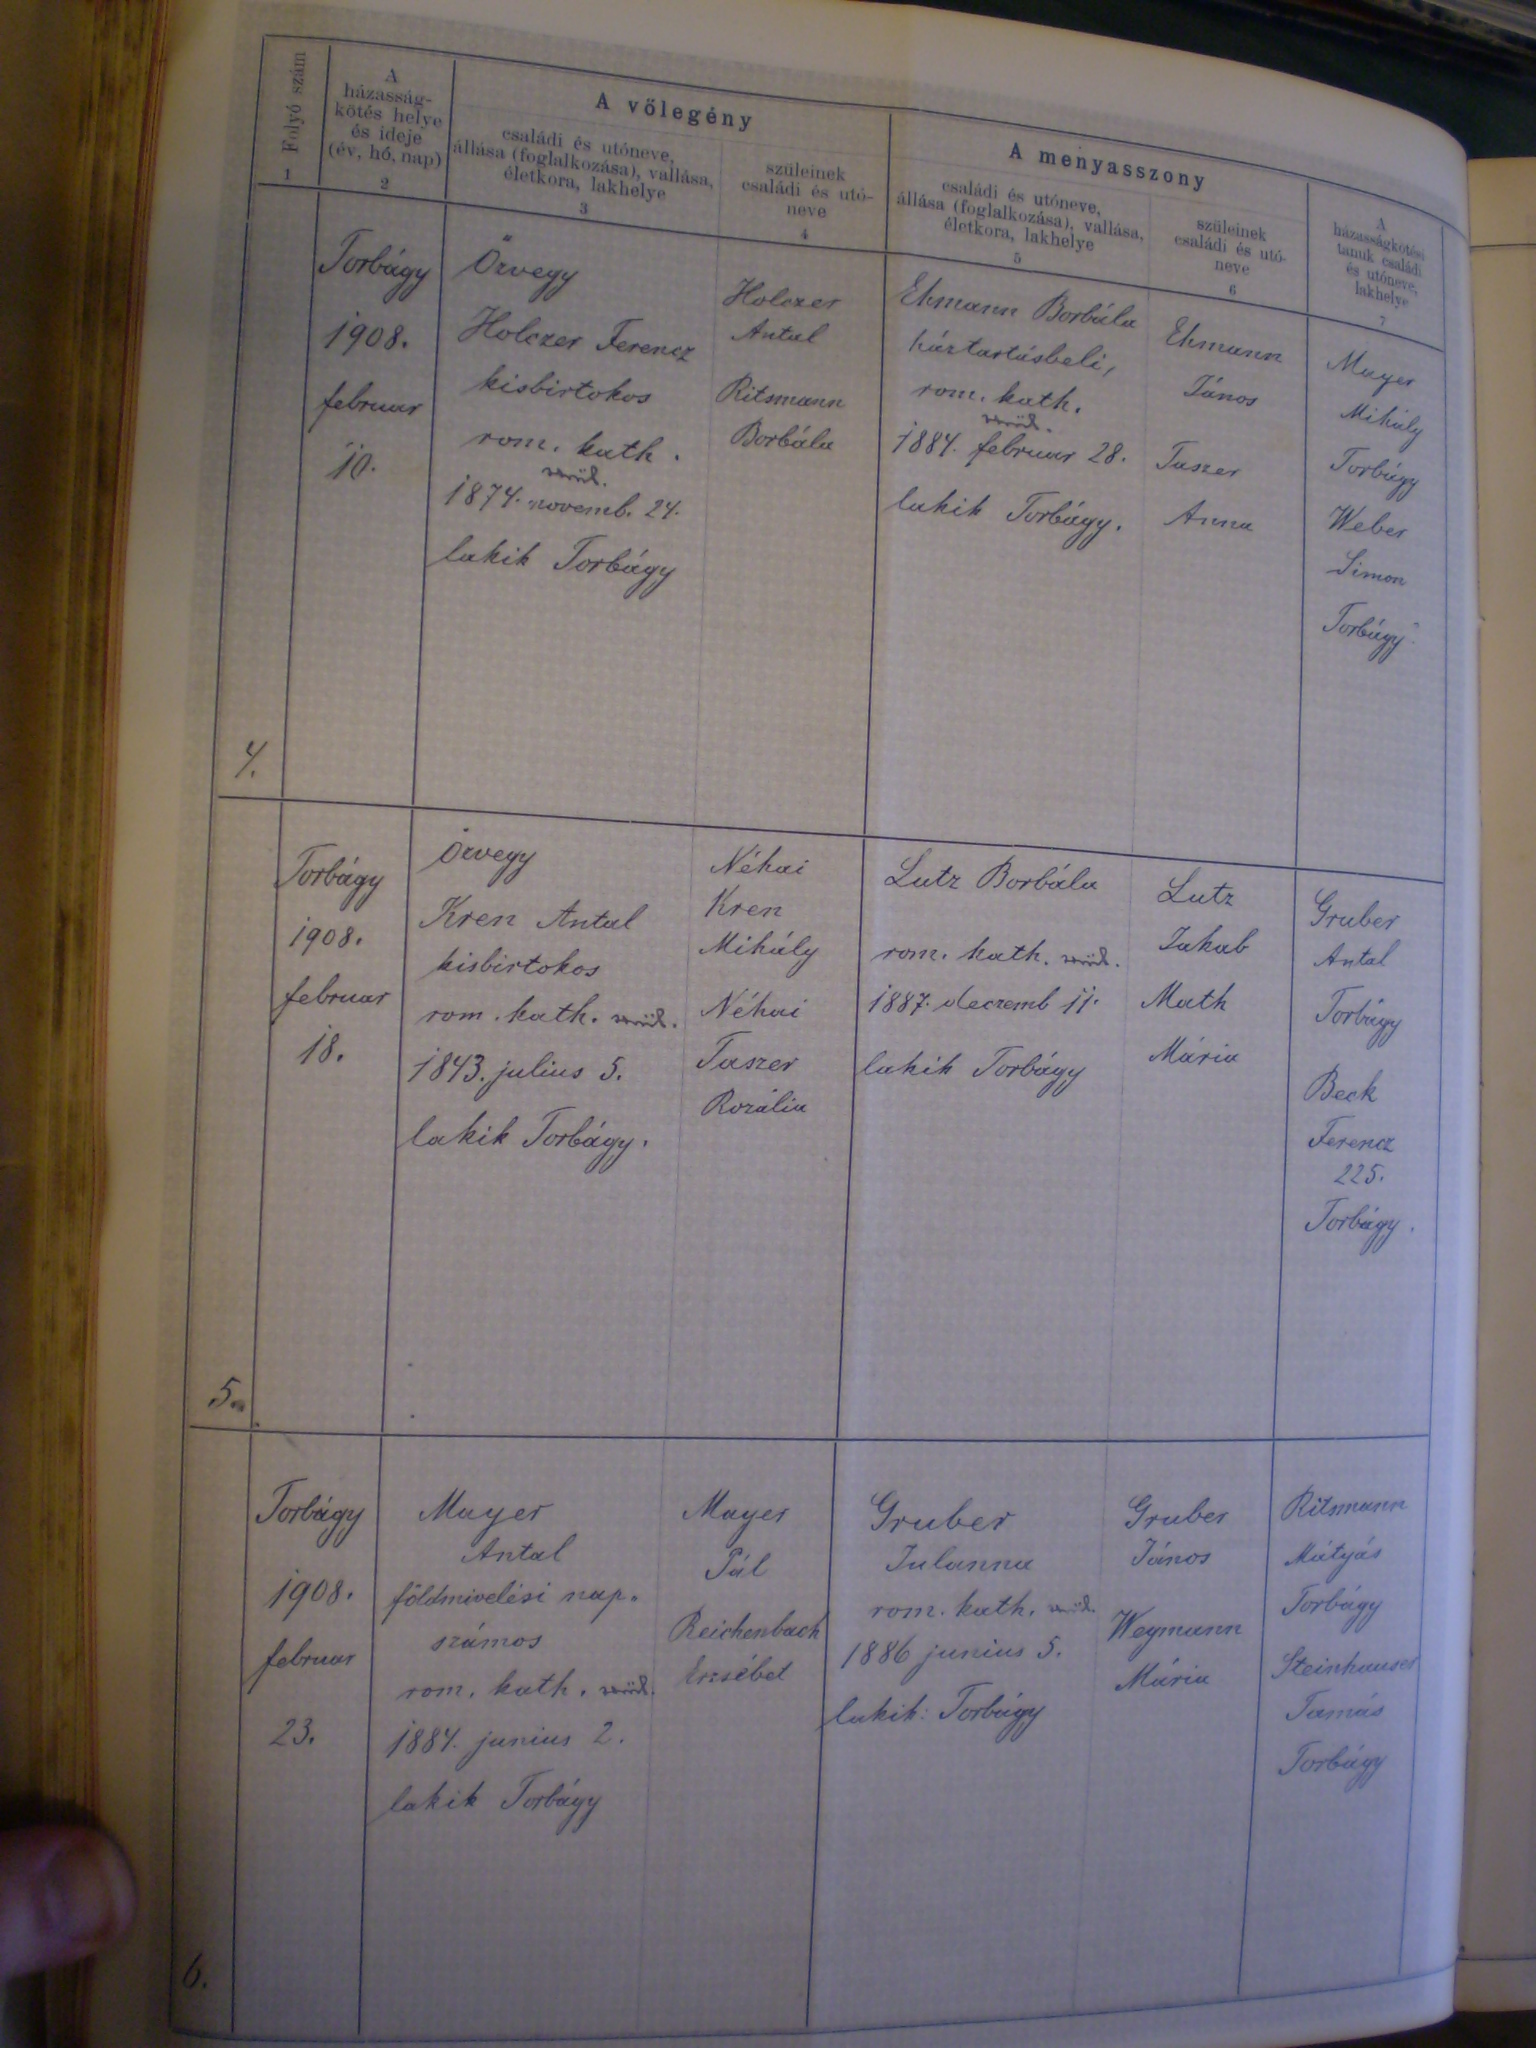 Folyó szám
1
A
házasság-
kötés helye
és ideje
(év, hó, nap)
2
A vőlegény
családi és utóneve,
állása (foglalkozása), vallása,
életkora, lakhelye
3
szüleinek
családi és utó-
neve
4
A menyasszony
családi és utóneve,
állása (foglalkozása), vallása,
életkora, lakhelye
5
szüleinek
családi és utó-
neve
6
A
házasságkötési
tanuk családi
és utóneve,
lakhelye
7
4.
Torbágy
1908.
februar
10.
Özvegy
Holczer Ferencz
kisbirtokos
rom. kath.
1874. novemb. 24.
lakik Torbágy
Holczer
Antal
Ritsmann
Borbála
Ehmann Borbála
háztartásbeli,
rom. kath.
1884. februar 28.
lakik Torbágy.
Ehmann
János
Taszer
Anna
Mayer
Mihály
Torbágy
Weber
Simon
Torbágy.
5.
Torbágy
1908.
februar
18.
Özvegy
Kren Antal
kisbirtokos
rom. kath.
1843. julius 5.
lakik Torbágy.
Néhai
Kren
Mihály
Néhai
Taszer
Rozália
Lutz Borbála
rom. kath.
1887. deczemb 11.
lakik Torbágy
Lutz
Jakab
Math
Mária
Gruber
Antal
Torbágy
Beck
Ferencz
225.
Torbágy.
6.
Torbágy
1908.
februar
23.
Mayer
Antal
földmivelési nap-
számos
rom. kath.
1884. junius 2.
lakik Torbágy
Mayer
Pál
Reichenbach
Erzsébet
Gruber
Julanna
rom. kath.
1886 junius 5.
lakik: Torbágy
Gruber
János
Weymann
Mária
Ritsmann
Mátyás
Torbágy
Steinhauser
Tamás
Torbágy